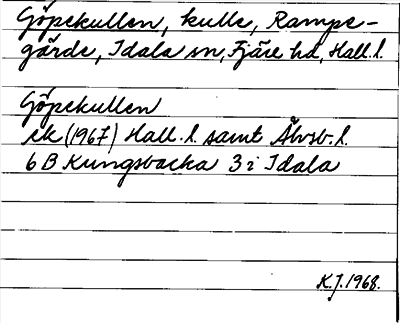 Göpekullen, kulle, Rampe-
gärde, Idala sn, Fjäre hd, Hall.l.
Göpekullen
ek (1967) Hall.l. samt Älvsb.l.
6 B Kungsbacka 3 i Idala
K.J. 1968.